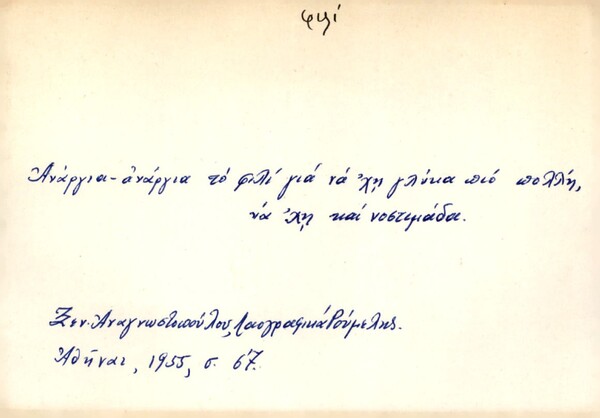 φιλί
Ἀνάργια-ἀνάργια τό φιλί γιά νά ᾿χῃ γλύκα πιό πολλή,
νά ᾿χῃ καί νοστιμάδα.
Ξεν. Ἀναγνωστοπούλου, Λαογραφικά Ρούμελης.
Ἀθῆναι, 1955, σ. 67.